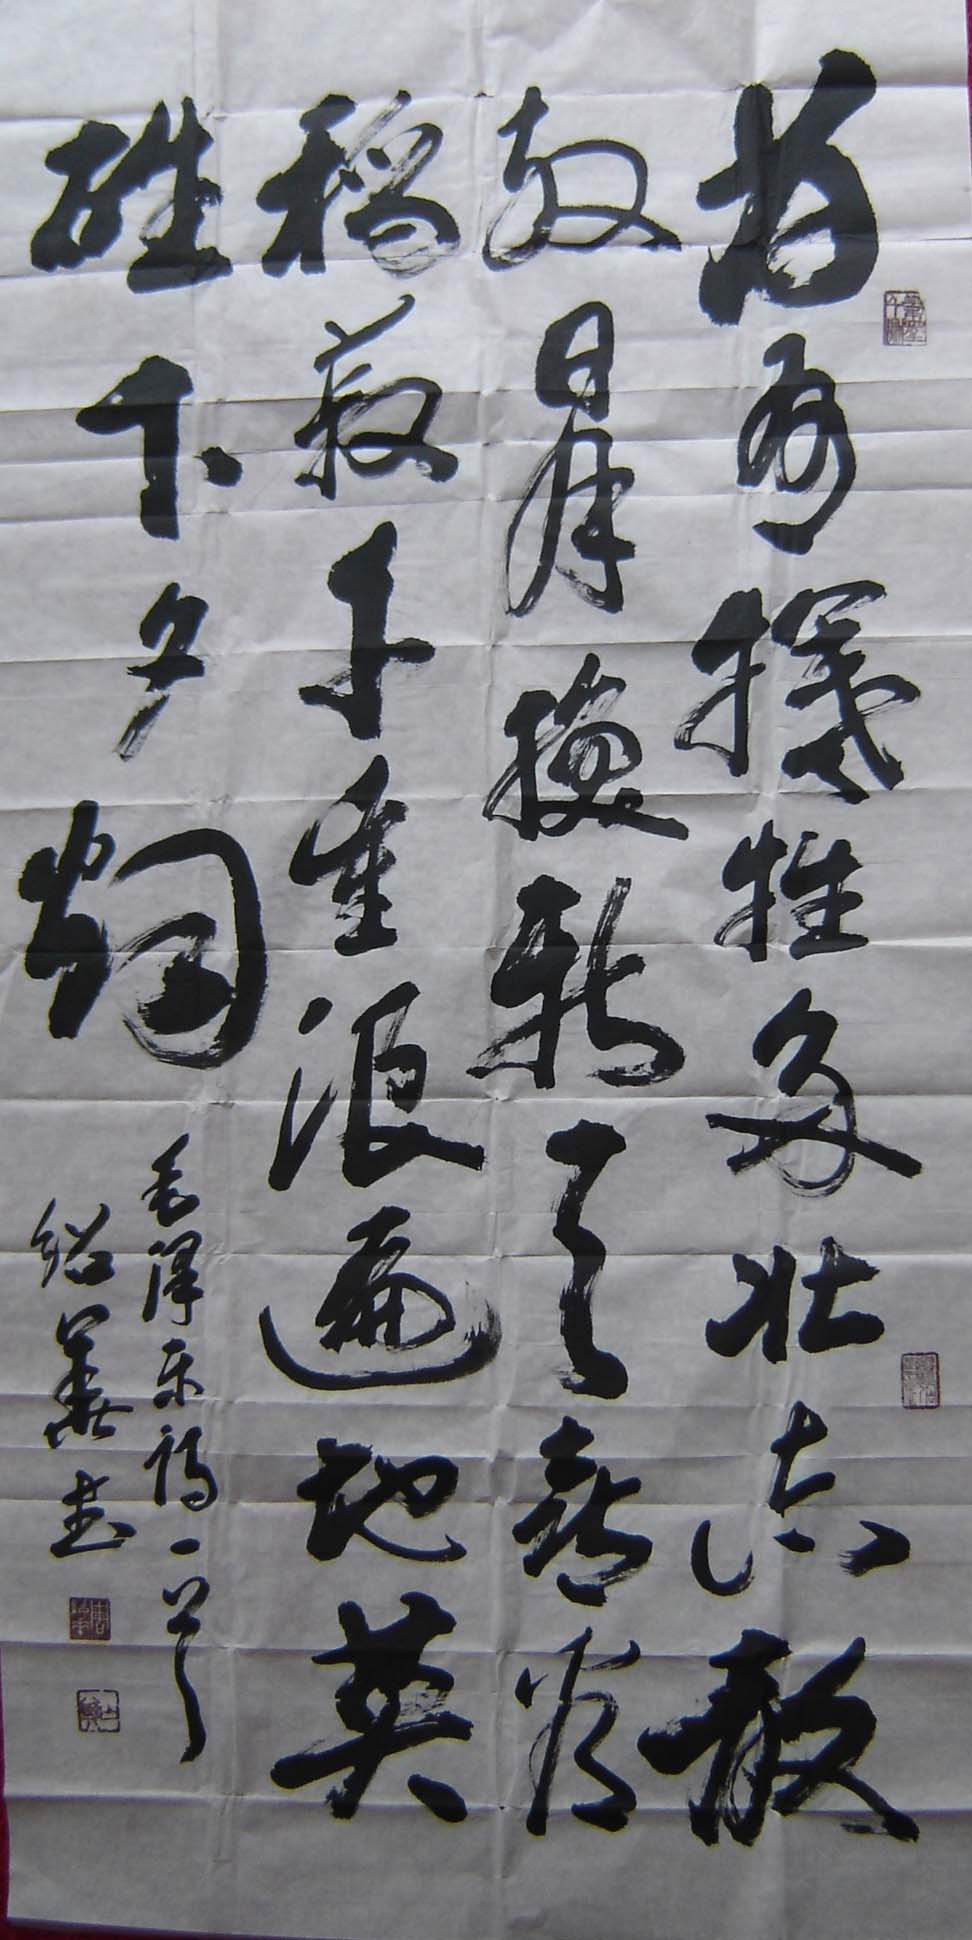 为有犧牲多壮志敢
教日月换新天喜看
稻菽千重浪遍地英
雄下夕烟
毛泽东诗一首
绍 书